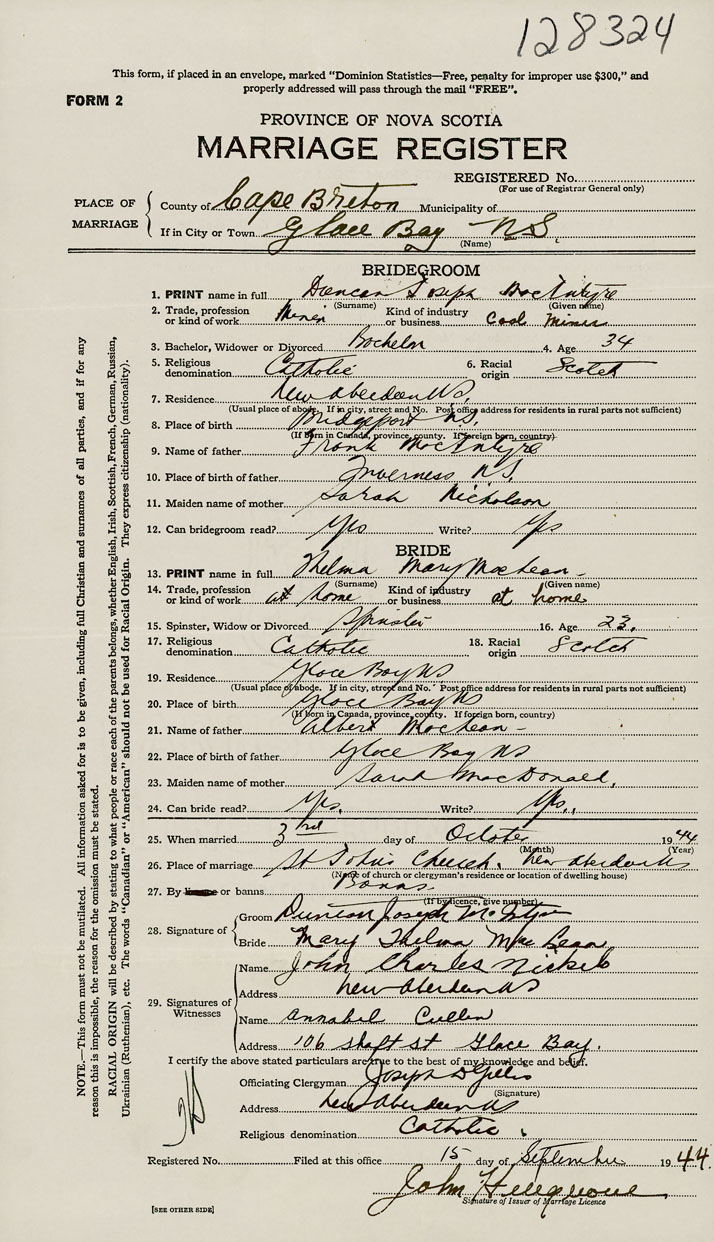 128324
This form, if placed in an envelope, marked “Dominion Statistics—Free, penalty for improper use $300,” and
properly addressed will pass through the mail “FREE”.
FORM 2
PROVINCE OF NOVA SCOTIA
MARRIAGE REGISTER
REGISTERED No.
(For use of Registrar General only)
PLACE OF MARRIAGE
County of Cape Breton Municipality of
If in City or Town Glace Bay NS
(Name)
BRIDEGROOM
1. PRINT name in full Duncan Joseph MacIntyre
(Surname) (Given name)
2. Trade, profession or kind of work Miner Kind of industry or business Coal Mines
3. Bachelor, Widower or Divorced Bachelor 4. Age 34
5. Religious denomination Catholic 6. Racial origin Scotch
7. Residence New Aberdeen NS.
(Usual place of abode. If in city, street and No. Post office address for residents in rural parts not sufficient)
8. Place of birth Bridgeport NS.
(If born in Canada, province, county. If foreign born, country)
9. Name of father Frank MacIntyre
10. Place of birth of father Inverness NS.
11. Maiden name of mother Sarah Nicholson
12. Can bridegroom read? Yes Write? Yes
BRIDE
13. PRINT name in full Thelma Mary MacLean
(Surname) (Given name)
14. Trade, profession or kind of work at home Kind of industry or business at home
15. Spinster, Widow or Divorced Spinster 16. Age 23.
17. Religious denomination Catholic 18. Racial origin Scotch
19. Residence Glace Bay NS
(Usual place of abode. If in city, street and No. Post office address for residents in rural parts not sufficient)
20. Place of birth Glace Bay NS
(If born in Canada, province, county. If foreign born, country)
21. Name of father Albert MacLean
22. Place of birth of father Glace Bay NS
23. Maiden name of mother Sarah MacDonald.
24. Can bride read? Yes. Write? Yes.
25. When married 3rd day of October 1944
(Month) (Year)
26. Place of marriage St John's Church. New Aberdeen NS
(Name of church or clergyman's residence or location of dwelling house)
27. By license or banns Banns
(If by licence, give number)
28. Signature of
Groom Duncan Joseph McIntyre
Bride Mary Thelma MacLean
29. Signatures of Witnesses
Name John Charles
Address New Aberdeen NS
Name Annabel Cullen
Address 106 Shaft St Glace Bay.
I certify the above stated particulars are true to the best of my knowledge and belief.
Officiating Clergyman Joseph D Gillis
(Signature)
Address New Aberdeen NS
Religious denomination Catholic
Registered No. Filed at this office 15 day of September 1944.
John
Signature of Issuer of Marriage Licence
[SEE OTHER SIDE]
NOTE.—This form must not be mutilated. All information asked for is to be given, including full Christian and surnames of all parties, and if for any
reason this is impossible, the reason for the omission must be stated.
RACIAL ORIGIN will be described by stating to what people or race each of the parents belongs, whether English, Irish, Scottish, French, German, Russian,
Ukrainian (Ruthenian), etc. The words “Canadian” or “American” should not be used for Racial Origin. They express citizenship (nationality).